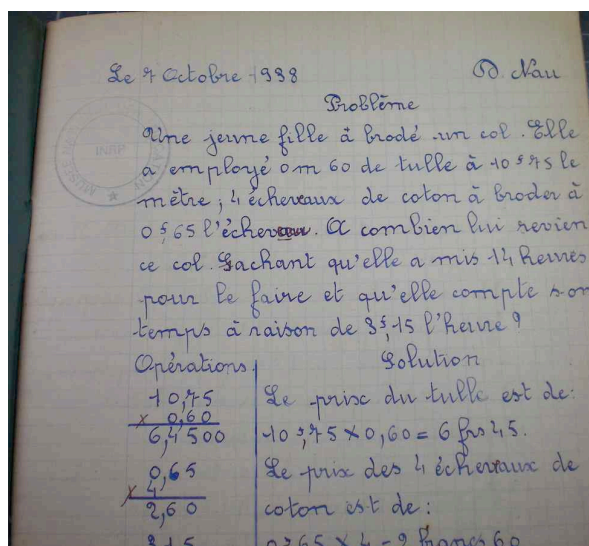 Le 7 Octobre 1938 D. Nau
Problème
Une jeune fille à brodé un col. Elle
a employé 0m60 de tulle à 10f75 le
mêtre ; 4 écheveaux de coton à broder à
0f,65 l'écheveau. A combien lui revien
ce col. Sachant qu'elle a mis 14 heures
pour le faire et qu'elle compte son
temps à raison de 3f,15 l'heure ?
Opérations Solution
10,75
x 0,60
6,4500
Le prix du tulle est de :
10f,75 x 0,60 = 6 frs 45.
0,65
x 4
2,60
Le prix des 4 écheveaux de
coton est de :
3,15
0f65 x 4 = 2 francs 60
INRP